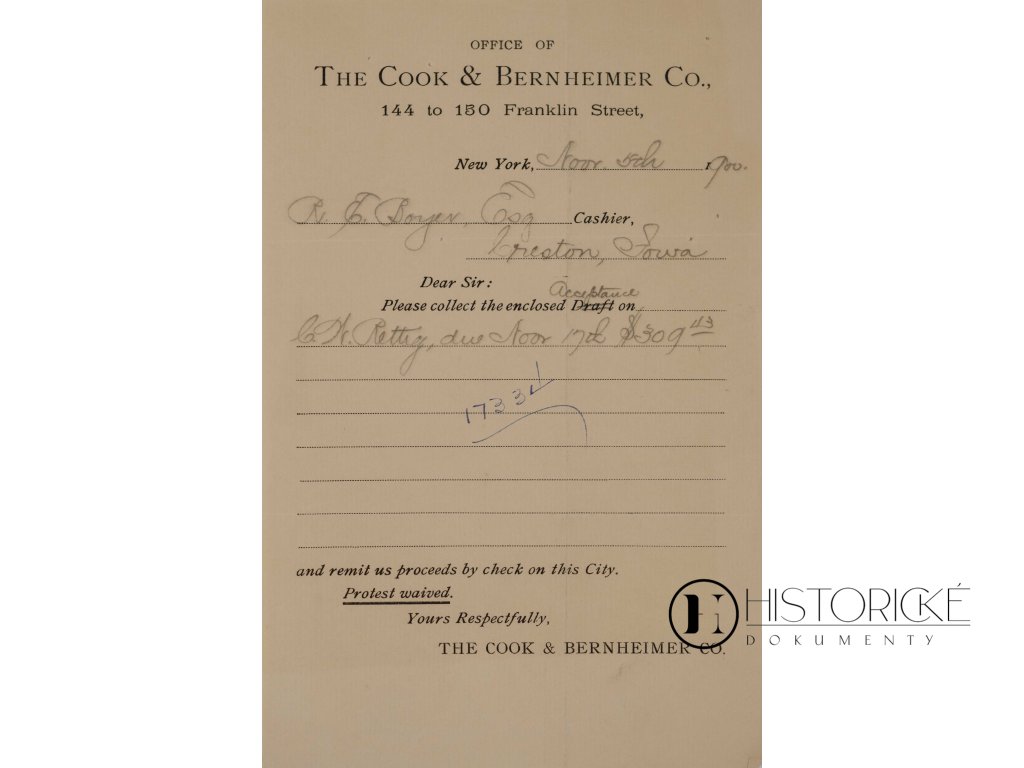 OFFICE OF
THE COOK & BERNHEIMER CO.,
144 to 150 Franklin Street,
New York, Nov. 5th 1900.
R. E. Boyer, Esq Cashier,
Creston, Iowa
Dear Sir:
Acceptance
Please collect the enclosed Draft on
C. W. Rettig, due Nov 17th $309 43
1733
and remit us proceeds by check on this City.
Protest waived.
Yours Respectfully,
THE COOK & BERNHEIMER CO.
HISTORICKÉ
DOKUMENTY